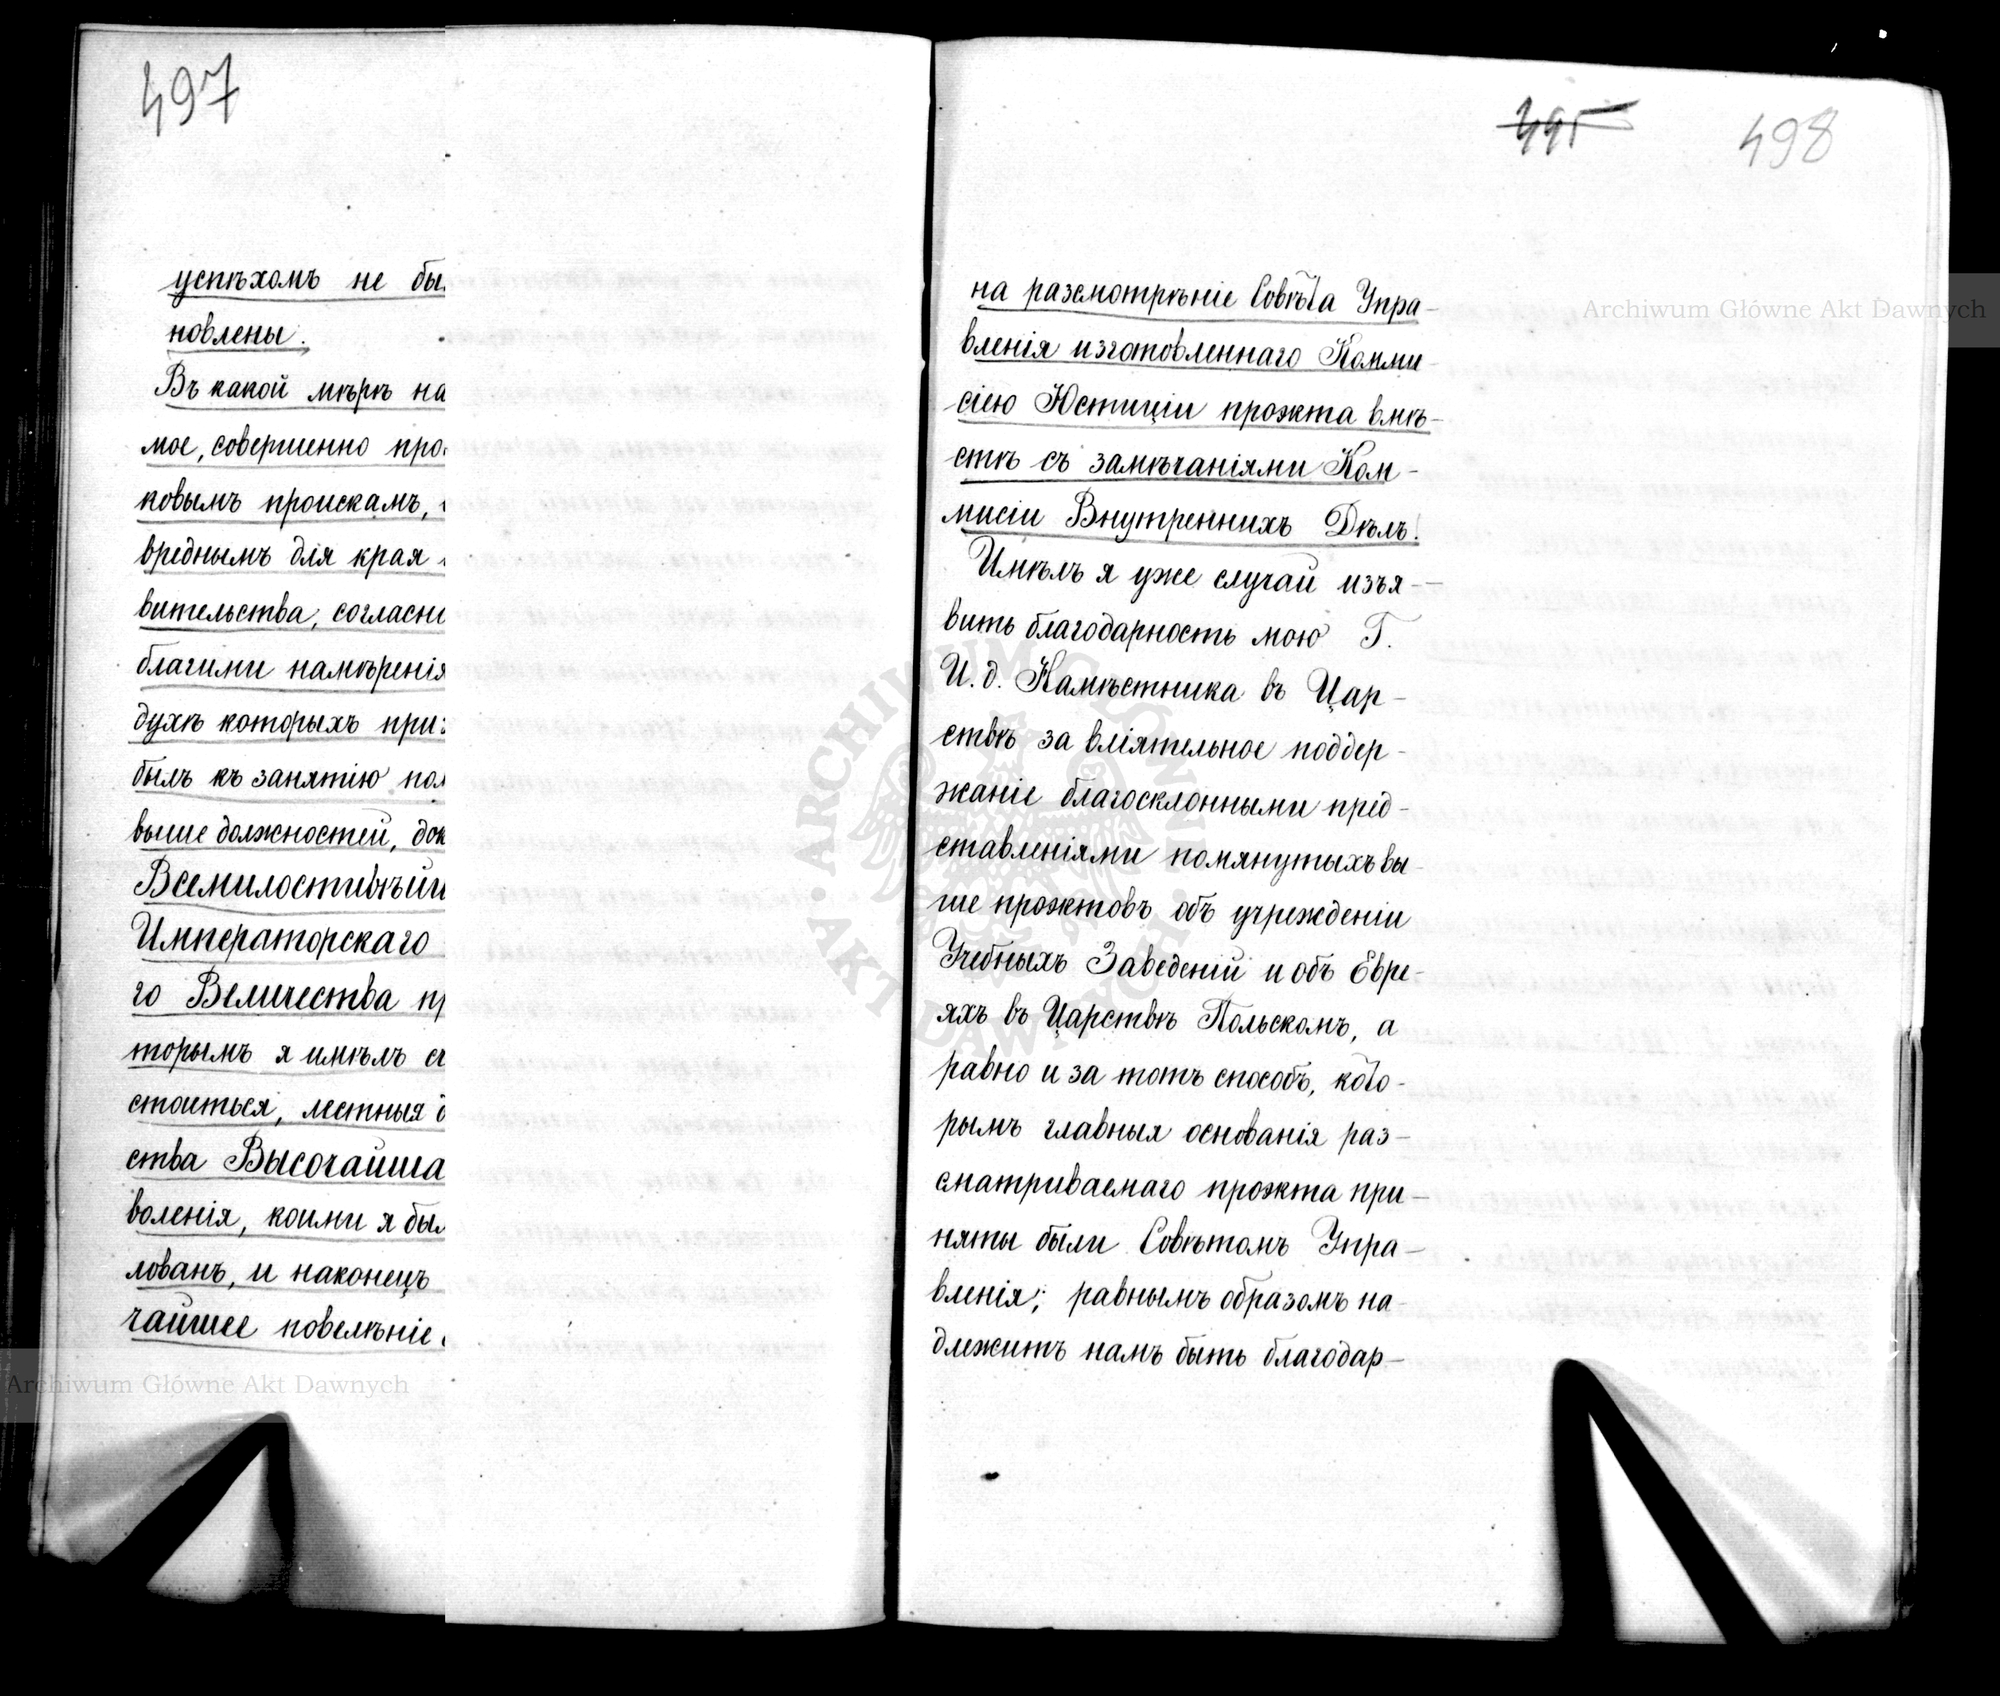 497
успѣхомъ не бы
новлены.
Въ какой мѣрѣ на
мое, совершенно про
ковымъ проискамъ,
вреднымъ для края
вительства, согласн
благими намѣренія
духѣ которыхъ при
былъ къ занятію
выше должностей, док
Всемилостивѣйш
Императорскаго
го Величества пр
торымъ я имѣлъ сч
стоиться, лестныя
ства Высочайша
воленія, коими я был
лованъ, и наконецъ
чайшее повелѣніе
495 498
на разсмотрѣніе Совѣта Упра-
вленія изготовленнаго Комми-
сіею Юстиціи проэкта вмѣ-
стѣ съ замѣчаніями Ком-
мисіи Внутреннихъ Дѣлъ!
Имѣлъ я уже случай изъя-
вить благодарность мою Г.
И. д. Намѣстника въ Цар-
ствѣ за вліятельное поддер-
жаніе благосклонными пред-
ставленіями помянутыхъ вы-
ше проэктовъ объ учрежденіи
Учебныхъ Заведеній и объ Евре-
яхъ въ Царствѣ Польскомъ, а
равно и за тотъ способъ, кото-
рымъ главныя основанія раз-
сматриваемаго проэкта при-
няты были Совѣтомъ Упра-
вленія; равнымъ образомъ на-
длежитъ намъ быть благодар-
Archiwum Główne Akt Dawnych
Archiwum Główne Akt Dawnych
ARCHIWUM GŁÓWNE AKT DAWNYCH